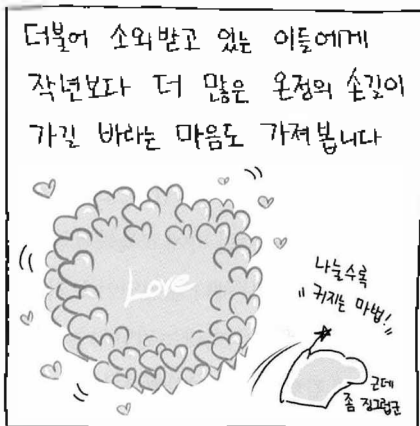 더불어 소외받고 있는 이들에게
작년보다 더 많은 온정의 손길이
가길 바라는 마음도 가져봅니다
Love
나눌수록
커지는 마법!
근데
좀 징그럽군